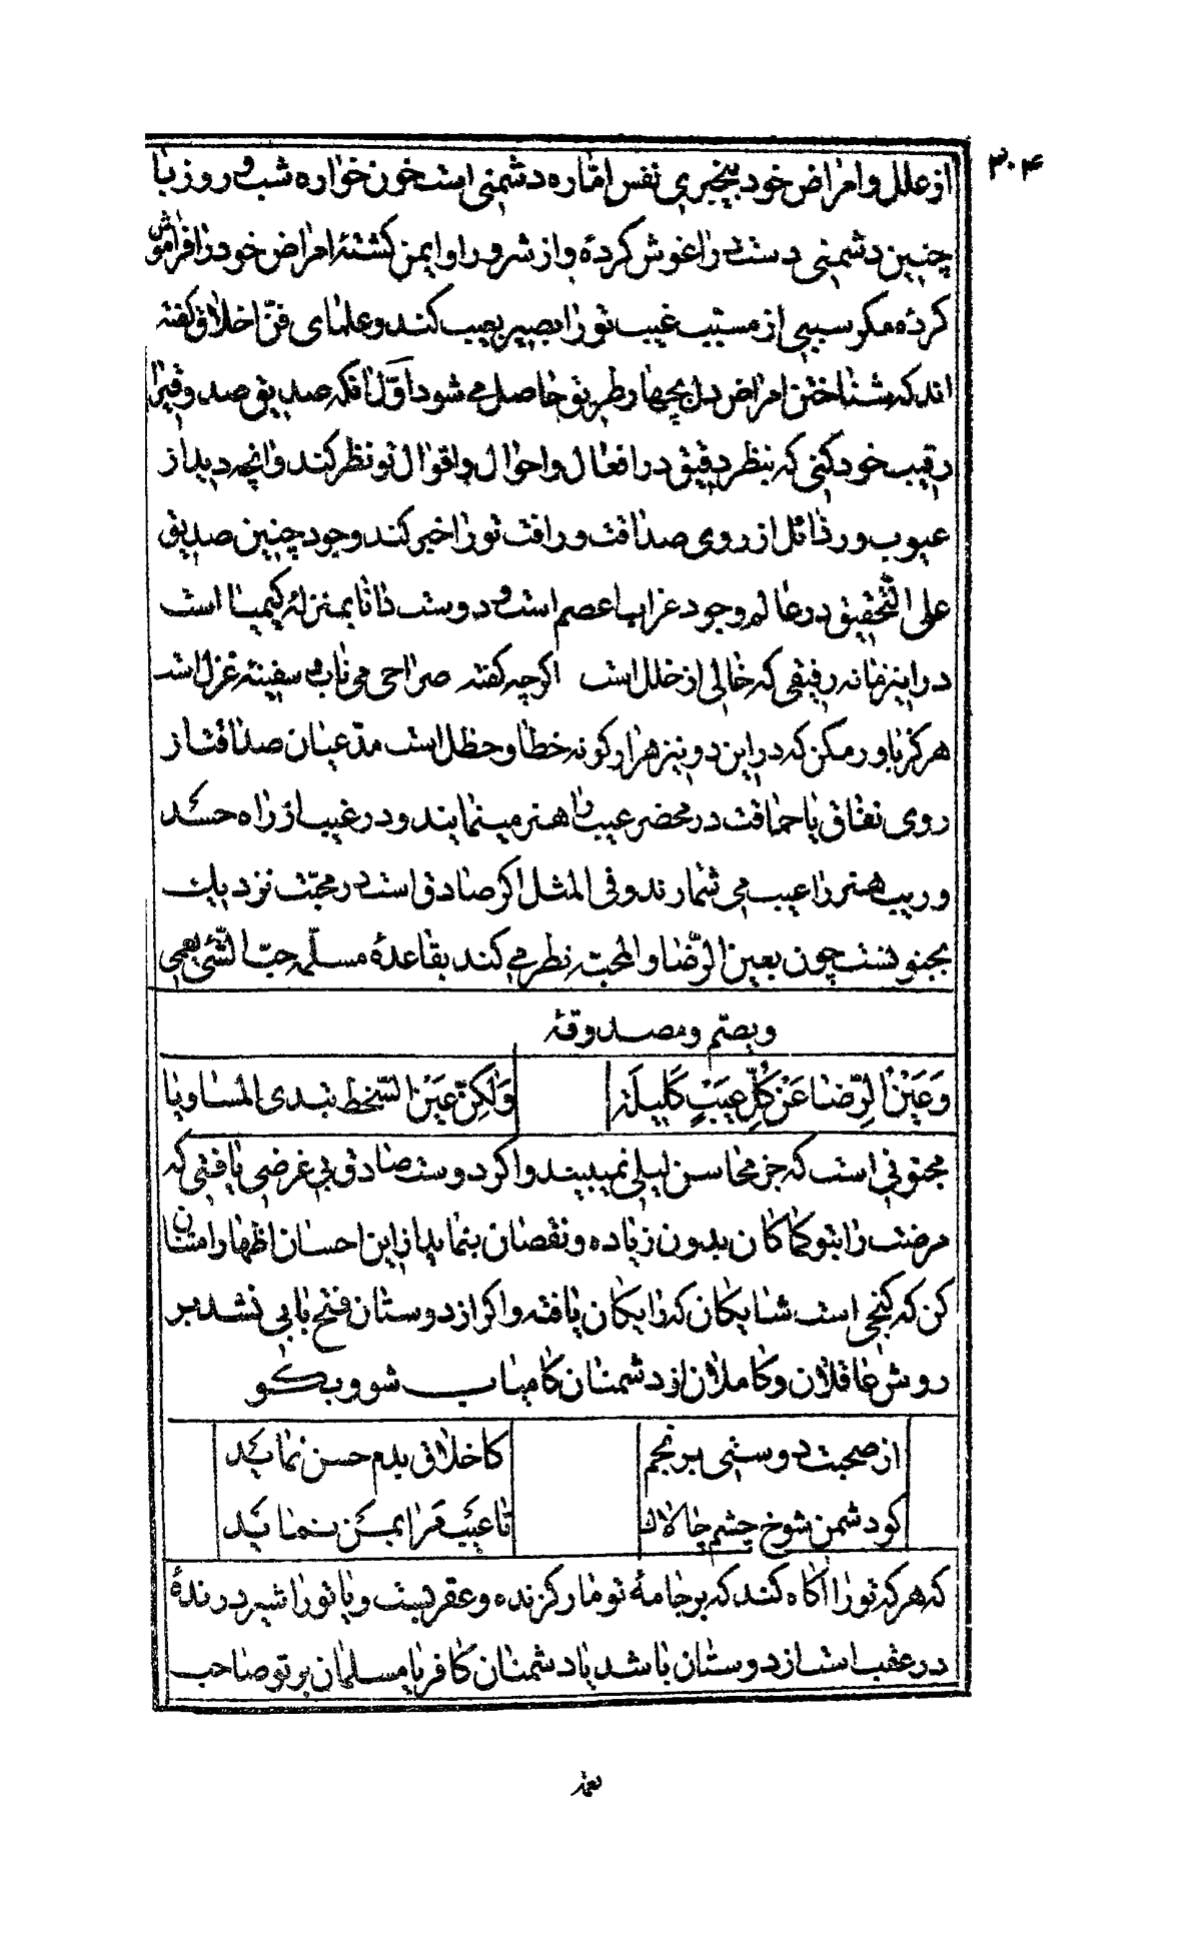 ۳۰۴
از علل و امراض خود بیخبری نفس امّاره دشمنی است خون خواره شب و روز با
چنین دشمنی دست در اغوش کردهٔ و از شرور او ایمن کشتهٔ امراض خود را فراموش
کردهٔ مکر سببی از مسبّب غیب تو را بصیر بعیب کند و علمای فنّ اخلاق کفته
اند که شناختن امراض دل بچهار طریق حاصل می شود اوّل انکه صدیق صدوقیرا
رقیب خود کنی که بنظر دقیق در افعال و احوال و اقوال تو نظر کند و انچه دید از
عیوب و رذائل از روی صداقت و رافت تو را خبر کند وجود چنین صدیق
علی التّحقیق در عالم وجود غراب اعصم است و دوست دانا بمنزلهٔ کیمیا است
در این زمانه رفیقی که خالی از خلل است اکر چه کفته صراحی می ناب و سفینهٔ غزل است
هرکز باور مکن که در این دو نیز هزار کونه خطا و خطل است مدّعیان صداقت از
روی نفاق یا حماقت در محضر عیب را هنر مینمایند و در غیب از راه حسد
و ریب هنر را عیب می شمارند و فی المثل اکر صادق است در محبّت نزدیک
بجنونست چون بعین الرّضا و المحبّه نظر می کند بقاعدهٔ مسلّمه حبّ الشّئ یعمی
و یصمّ و مصدوقهٔ
وَ عَیْنُ الرِّضا عَنْ کُلِّ عَیبٍ کَلیلَة وَلکِنّ عَیْنَ السّخط تبدی المساویا
مجنونی است که جز محاسن لیلی نمیبیند و اکر دوست صادق بی غرضی یافتی که
مرضت را بتو کما کان بدون زیاده و نقصان بنماید از این احسان اظهار امتنان
کن که کنجی است شایکان که رایکان یافته و اکر از دوستان فتح بابی نشد بر
روش عاقلان و کاملان از دشمنان کامیاب شو و بکو
از صحبت دوستی برنجم کاخلاق بدم حسن نماید
کو دشمن شوخ چشم چالاک تا عیب مرا بمن نماید
که هر که تو را اکاه کند که بر جامهٔ تو مار کزنده و عقربیست و یا تو را شیر درندهٔ
در عقب است از دوستان باشد یا دشمنان کافر یا مسلمان بر تو صاحب